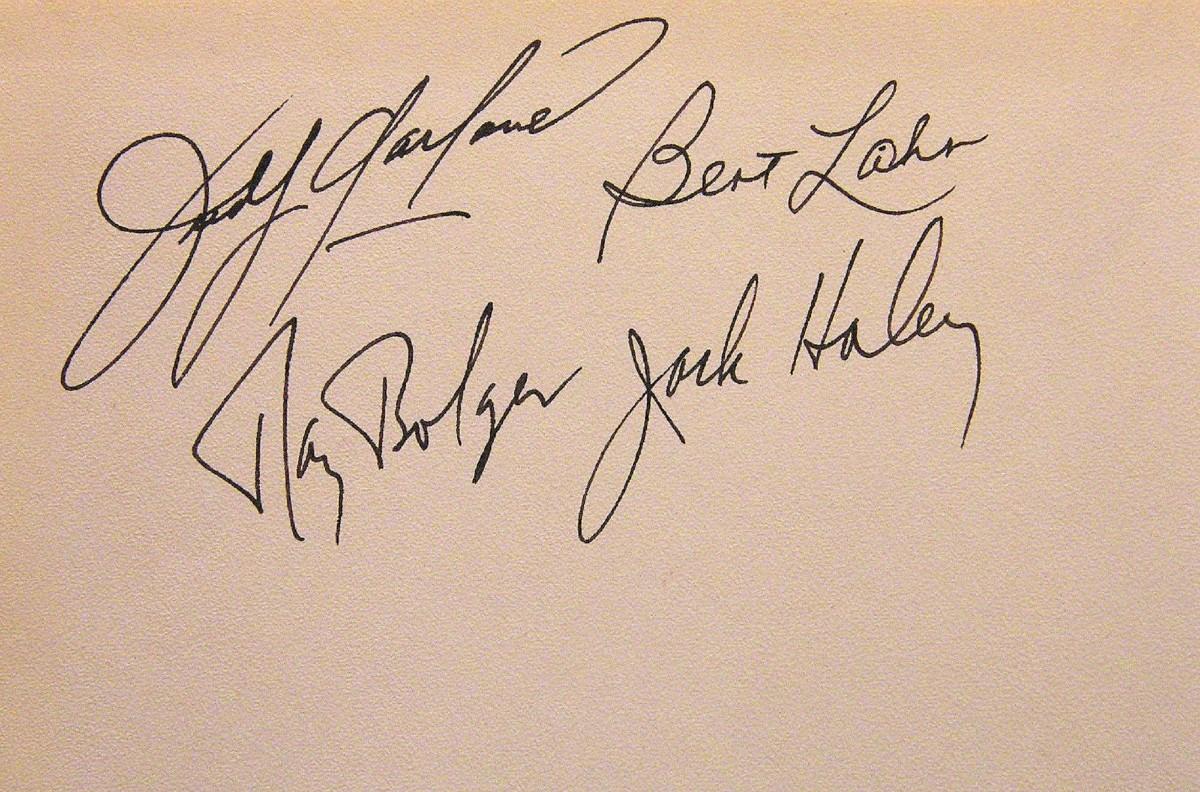 Judy Garland Bert Lahr
Ray Bolger Jack Haley